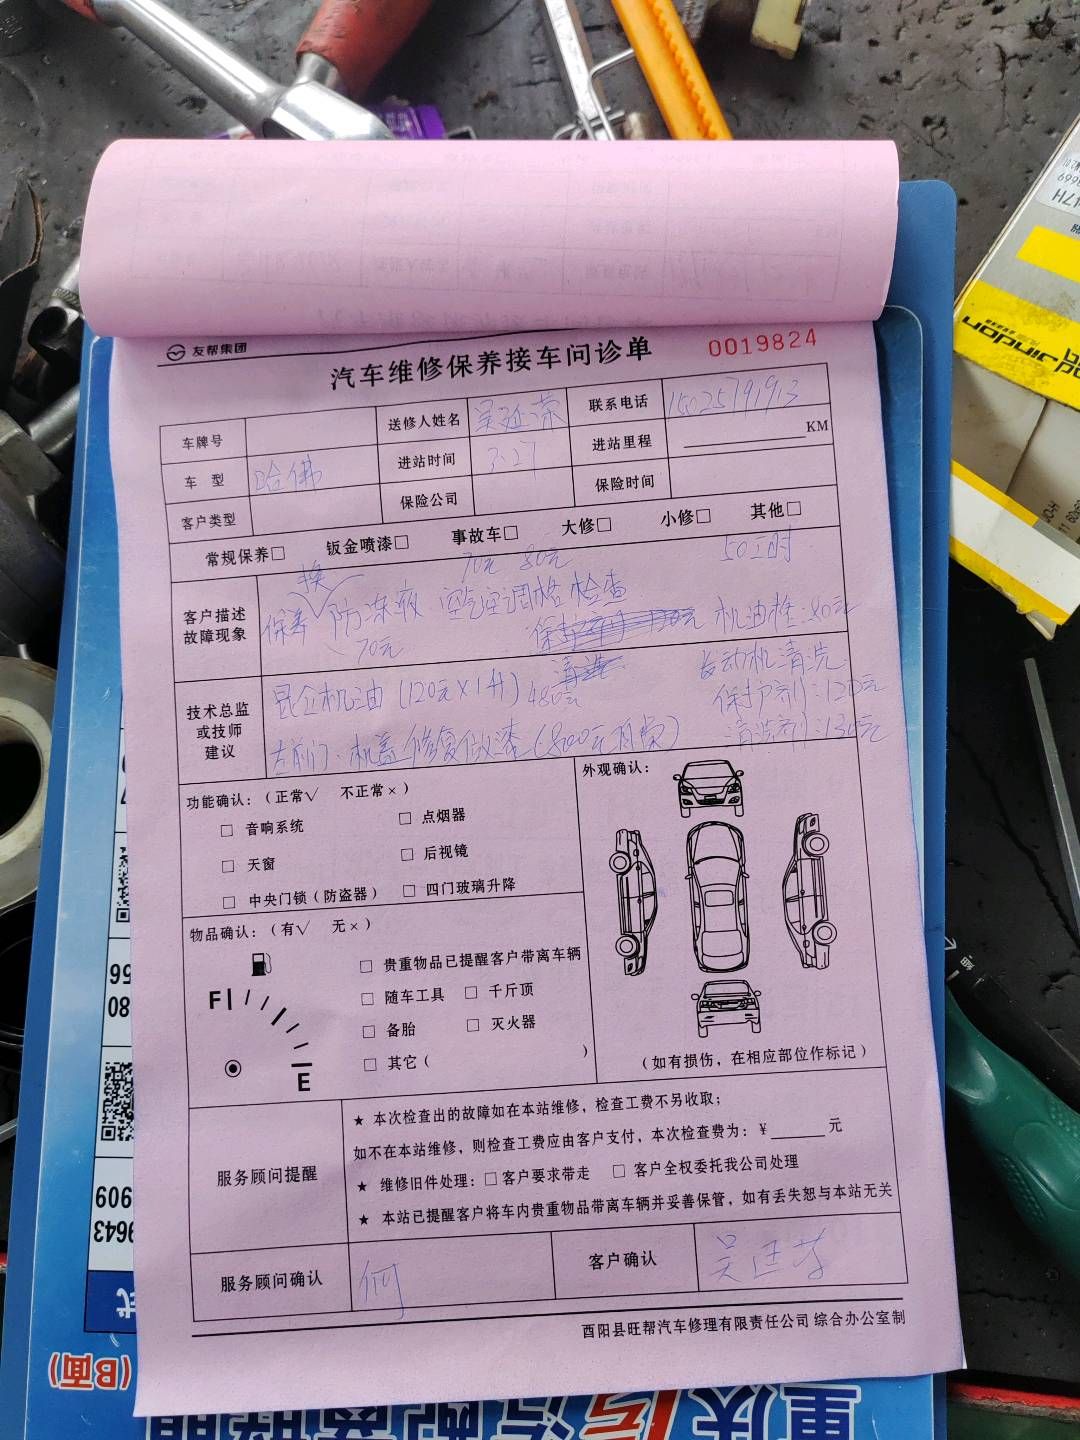 友帮集团
汽车维修保养接车问诊单
0019824
车牌号 送修人姓名 吴廷荣 联系电话 15025791913
车 型 哈佛 进站时间 3.27 进站里程 KM
客户类型 保险公司 保险时间
常规保养□ 钣金喷漆□ 事故车□ 大修□ 小修□ 其他□
换 70元 80元 50工时
客户描述
故障现象
保养 防冻液 空气空调格 检查
70元 机油栓:80元
技术总监
或技师
建议
昆仑机油(120元×4升)480元 发动机清洗
保护剂:120元
左前门、机盖修复做漆(800元 清洗剂:130元
功能确认:(正常√ 不正常×)
□ 音响系统 □ 点烟器
□ 天窗 □ 后视镜
□ 中央门锁(防盗器) □ 四门玻璃升降
外观确认:
(如有损伤,在相应部位作标记)
物品确认:(有√ 无×)
□ 贵重物品已提醒客户带离车辆
□ 随车工具 □ 千斤顶
□ 备胎 □ 灭火器
□ 其它( )
F
E
服务顾问提醒
★ 本次检查出的故障如在本站维修,检查工费不另收取;
如不在本站维修,则检查工费应由客户支付,本次检查费为:¥______元
★ 维修旧件处理:□客户要求带走 □ 客户全权委托我公司处理
★ 本站已提醒客户将车内贵重物品带离车辆并妥善保管,如有丢失恕与本站无关
服务顾问确认 何 客户确认 吴廷荣
酉阳县旺帮汽车修理有限责任公司 综合办公室制
(B面)